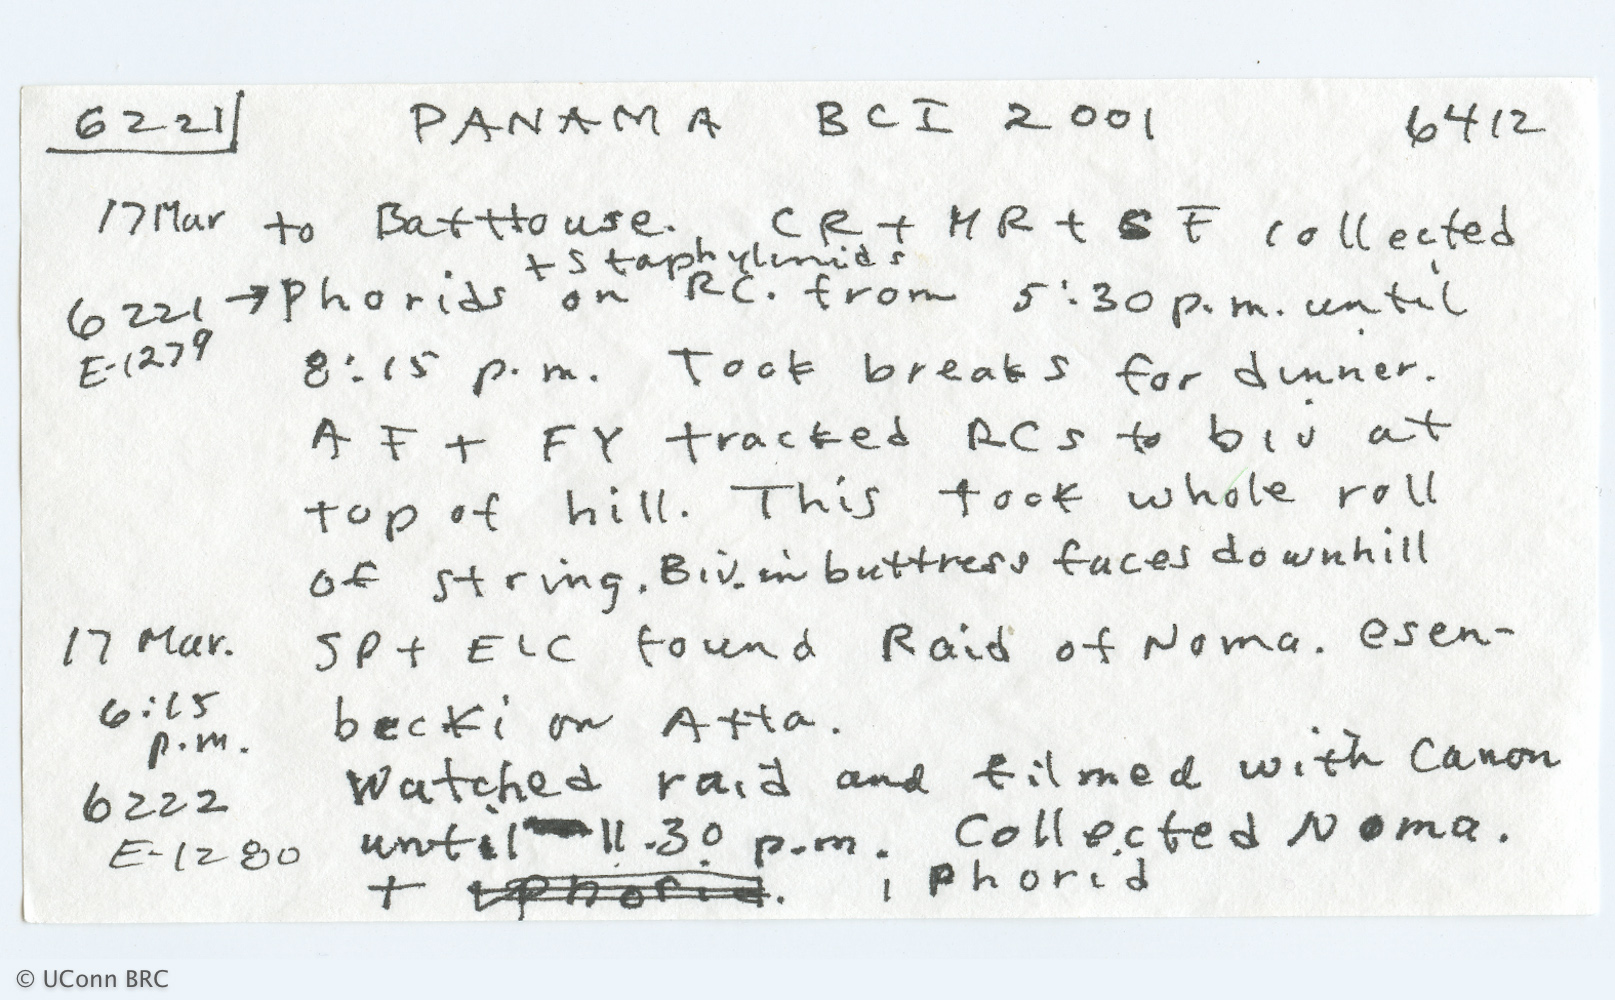 6221 PANAMA BCI 2001 6412
17 Mar to BatHouse. CR + MR + SF collected
+ Staphylinids
6221 → Phorids on RC. from 5:30 p.m. until
E-1279 8:15 p.m. Took breaks for dinner.
AF + FY tracked RCs to biv at
top of hill. This took whole roll
of string. Biv. in buttress faces downhill
17 Mar. SP + ELC found Raid of Noma. esen-
6:15 becki on Atta.
p.m.
Watched raid and filmed with Canon
6222
until 11.30 p.m. Collected Noma.
E-1280
+ Phorid. 1 Phorid
© UConn BRC